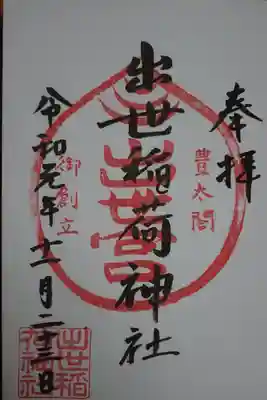 奉拝
豊太閤
出世稲荷神社
御創立
令和元年十一月二十三日
出世稲
荷神社